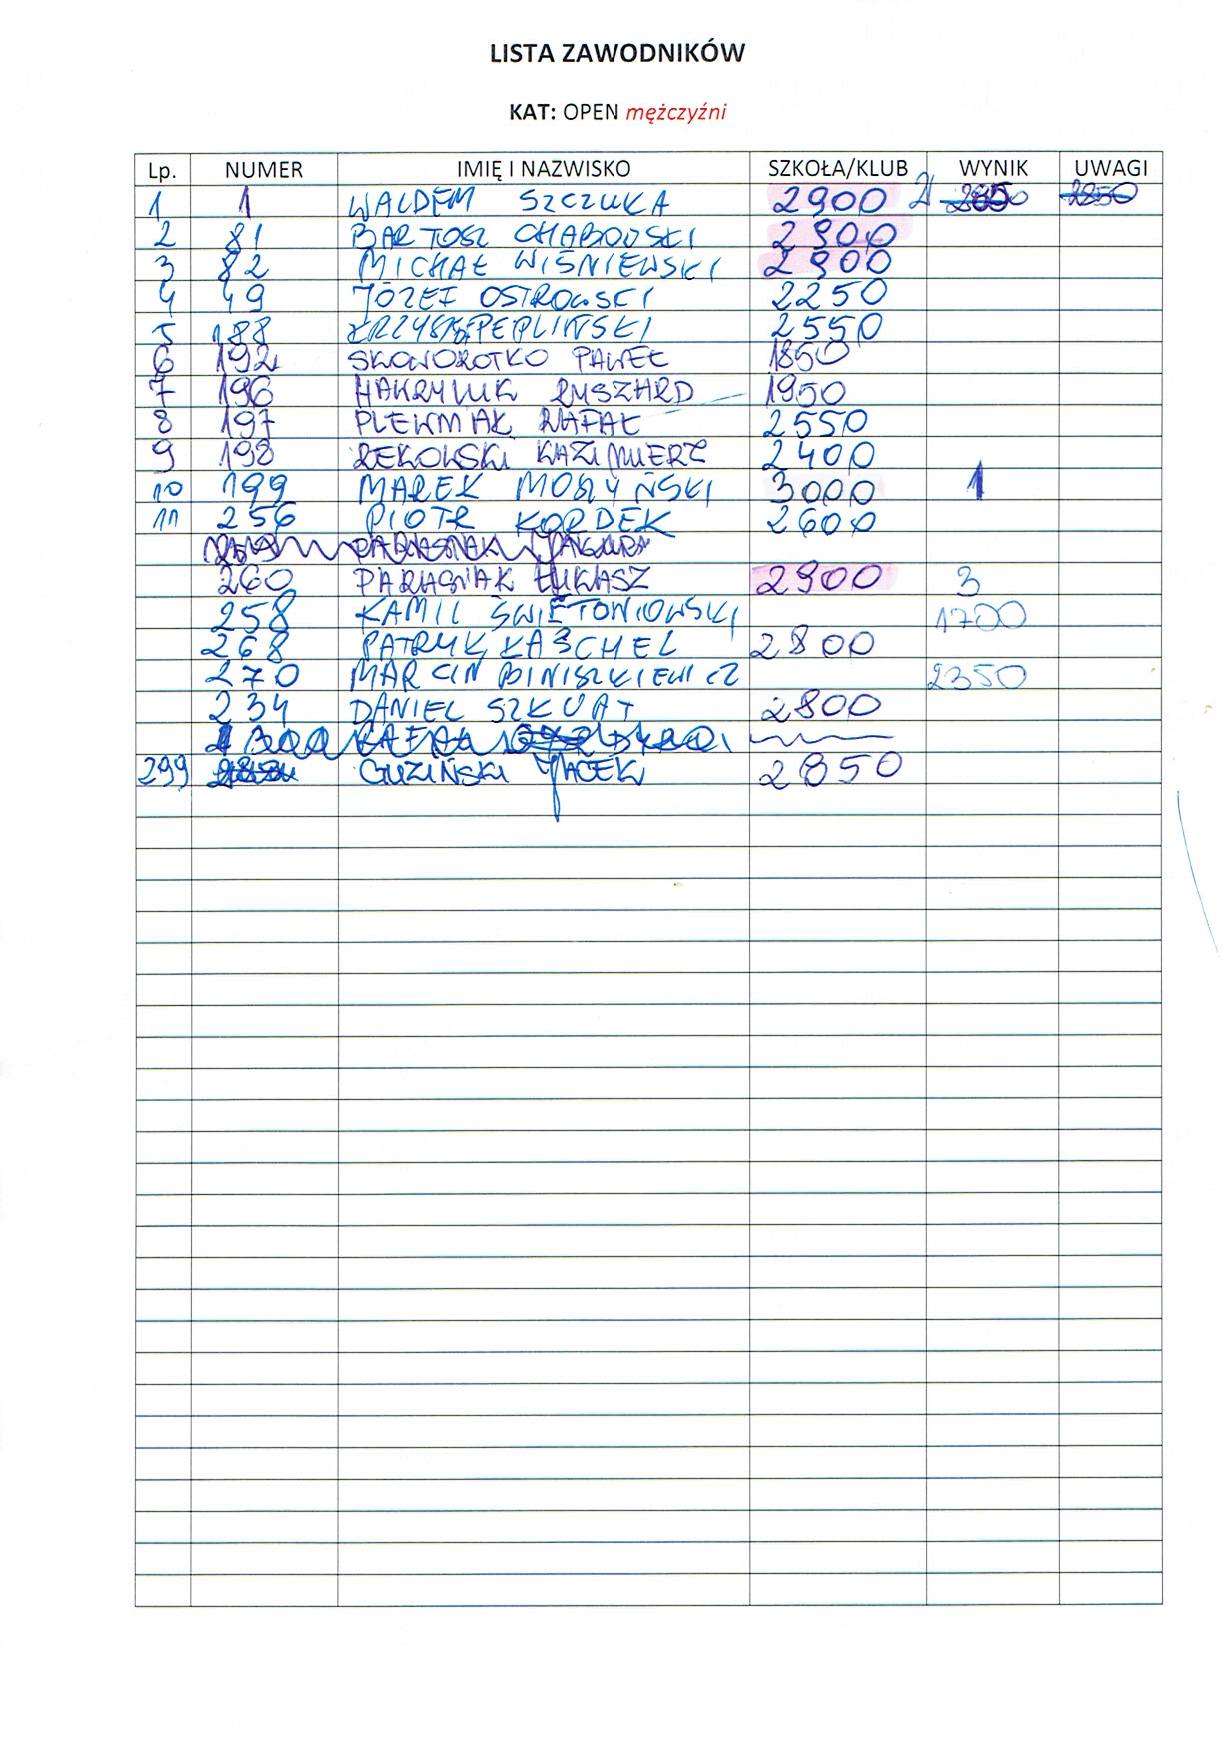 LISTA ZAWODNIKÓW
KAT: OPEN mężczyźni
Lp. NUMER IMIĘ I NAZWISKO SZKOŁA/KLUB WYNIK UWAGI
1 1 WALDEM SZCZUKA 2900 2 2850
2 81 BARTOSZ CHABOWSKI 2900
3 82 MICHAŁ WIŚNIEWSKI 2900
4 49 JÓZEF OSTROWSKI 2250
5 188 PEPLIŃSKI 2550
6 192 SKOWOROTKO PAWEŁ 1850
7 196 HAWRYLUK RYSZARD 1950
8 197 PLEWNIAK RAFAŁ 2550
9 198 REKOWSKI KAZIMIERZ 2400
10 199 MAREK MORYŃSKI 3000 1
11 256 PIOTR KORDEK 2600
260 PARIASNIAK ŁUKASZ 2900 3
258 KAMIL ŚWIETONIOWSKI 1700
268 PATRYK KASCHEL 2800
270 MARCIN BINISZKIEWICZ 2350
234 DANIEL SZKUAT 2800
299 GUZIŃSKI JACEK 2850